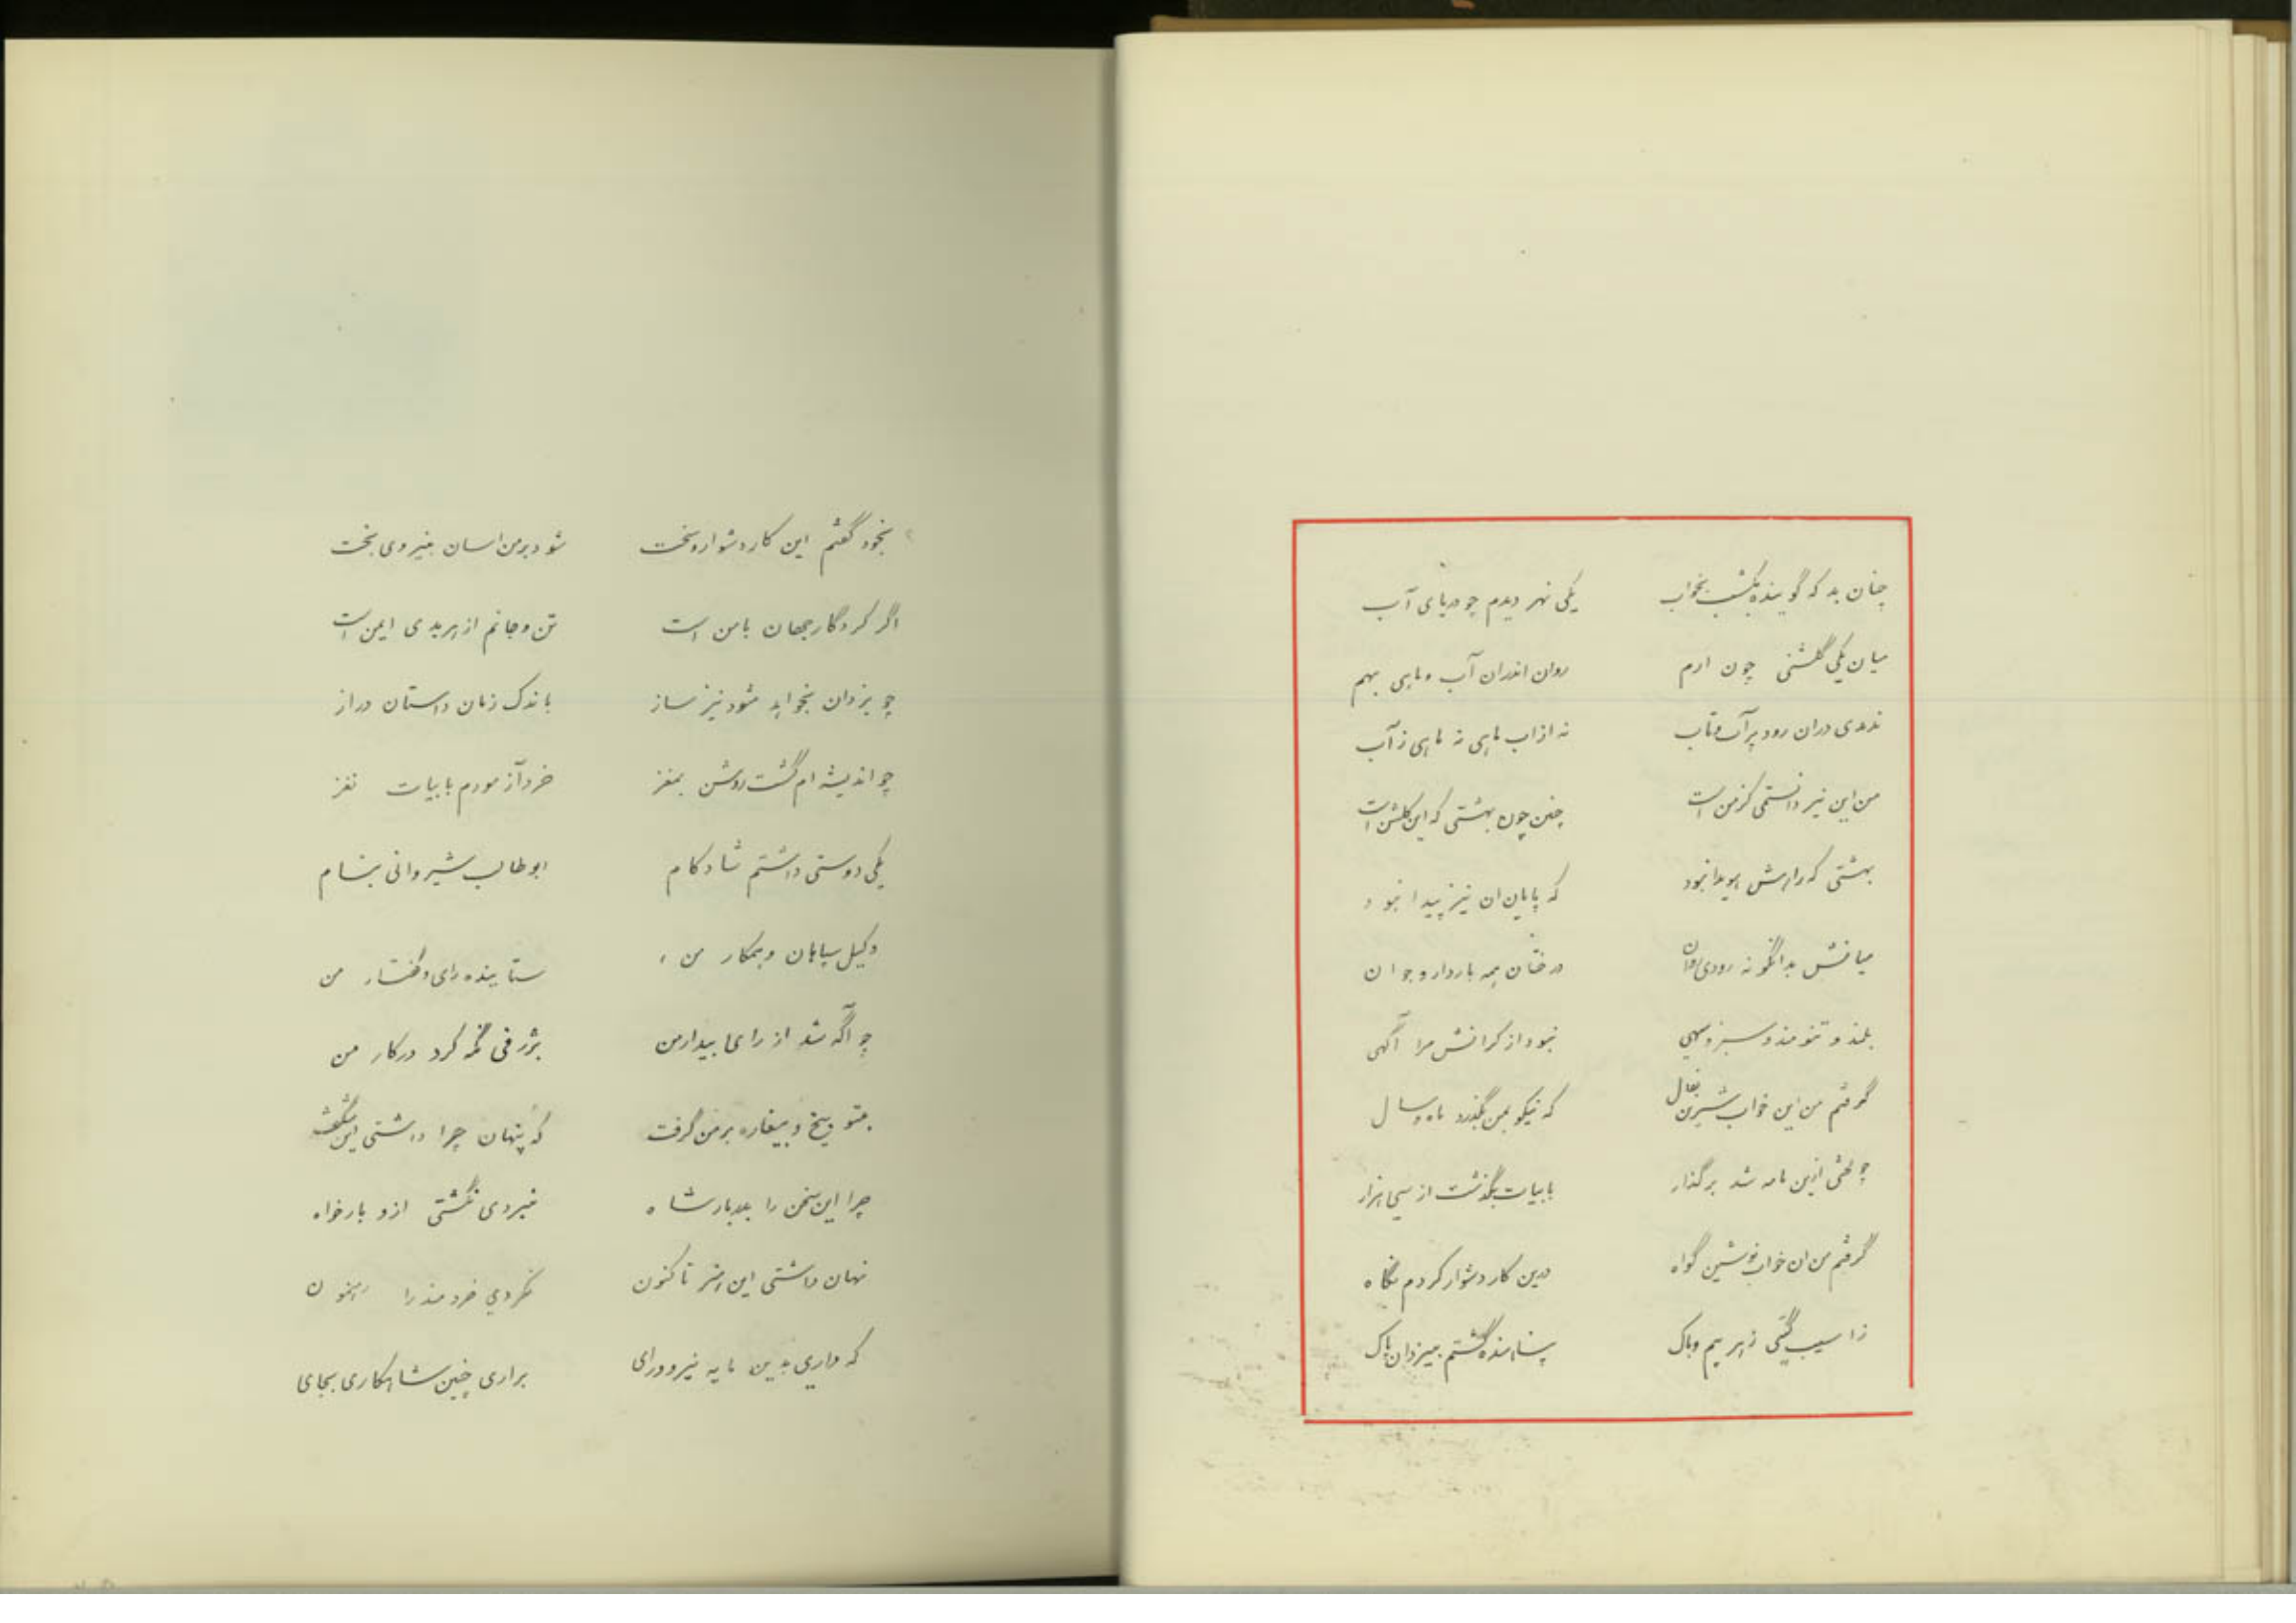 چنان بد که گوینده یکشب بخواب    یکی نهر دیدم چو دریای آب
میان یکی گلشنی چون ارم    روان اندران آب و ماهی بهم
ندیدی دران رود پر آب و تاب    نه از اب ماهی نه ماهی ز آب
من این نیز دانستمی کز من است    چنین چون بهشتی که این گلشن است
بهشتی که رازش هویدا نبود    که پایان ان نیز پیدا نبود
میانش بدانگونه رودی روان    درختان همه باردار و جوان
بلند و تنومند و سبز و سهی    نبود از کرانش مرا آگهی
گرفتم من این خواب شیرین بفال    که نیکو بمن بگذرد ماه و سال
چو لختی ازین نامه شد برگذار    بابیات بگذشت از سی هزار
گرفتم من ان خواب نوشین گواه    درین کار دشوار کردم نگاه
ز اسیب گیتی ز هر بیم و باک    پناهنده گشتم بیزدان پاک
بخود گفتم این کار دشوار و سخت    شود بر من اسان بنیروی بخت
اگر کردگار جهان با من است    تن و جانم از هر بدی ایمن است
چو یزدان بخواهد شود نیز ساز    باندک زمان داستان دراز
چو اندیشه ام گشت روشن بمغز    خرد آزمودم بابیات نغز
یکی دوستی داشتم شادکام    ابوطالب شیروانی بنام
وکیل سپاهان و همکار من    ستاینده رای و گفتار من
چو آگه شد از رای بیدار من    بژرفی نگه کرد در کار من
و بیغاره بر من گرفت    که پنهان چرا داشتی این شگفت
چرا این سخن را بدربار شاه    نبردی نگشتی ازو بارخواه
نهان داشتی این هنر تا کنون    نکردی خردمند را رهنمون
که داری بدین مایه نیرو و رای    براری چنین شاهکاری بجای